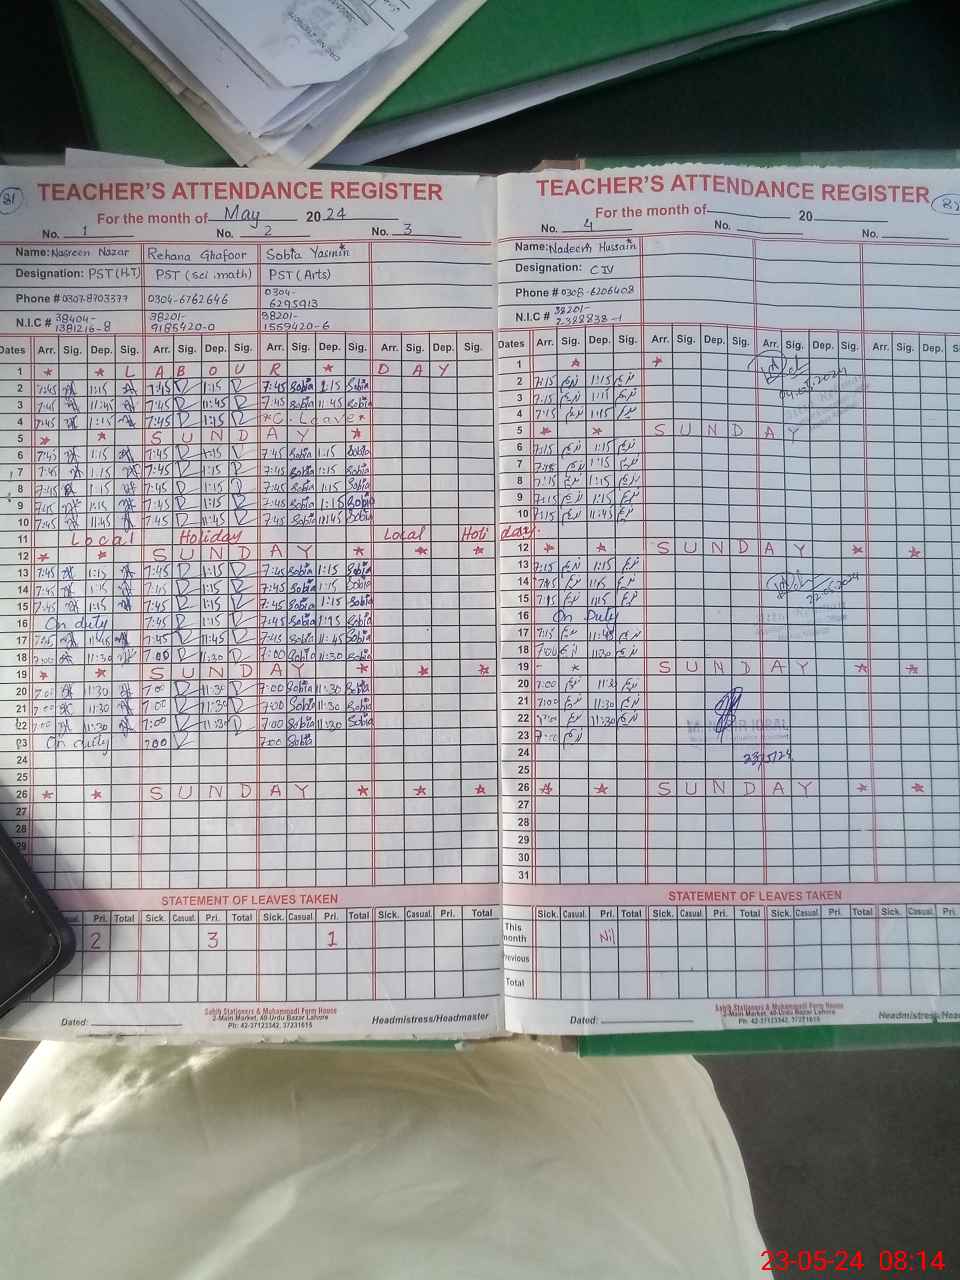 81
TEACHER'S ATTENDANCE REGISTER
For the month of May 2024
No. 1 No. 2 No. 3
Name: Nasreen Nazar Rehana Ghafoor Sobia Yasmin
Designation: PST(H.T) PST (sci.math) PST (Arts)
Phone # 0307-8703377 0304-6762646 0304-6295913
N.I.C # 38404-1381216-8 38201-9185420-0 38201-1559420-6
Dates Arr. Sig. Dep. Sig. Arr. Sig. Dep. Sig. Arr. Sig. Dep. Sig. Arr. Sig. Dep. Sig.
1 * * L A B O U R * D A Y
2 7:45 1:15 7:45 1:15 7:45 Sobia 1:15 Sobia
3 7:45 11:45 7:45 11:45 7:45 Sobia 11:45 Sobia
4 7:45 1:15 7:45 1:15 * C. Leave *
5 * * S U N D A Y *
6 7:45 1:15 7:45 1:15 7:45 Sobia 1:15 Sobia
7 7:45 1:15 7:45 1:15 7:45 Sobia 1:15 Sobia
8 7:45 1:15 7:45 1:15 7:45 Sobia 1:15 Sobia
9 7:45 1:15 7:45 1:15 7:45 Sobia 1:15 Sobia
10 7:45 11:45 7:45 11:45 7:45 Sobia 11:45 Sobia
11 Local Holiday Local Holi day.
12 * * S U N D A Y * * *
13 7:45 1:15 7:45 1:15 7:45 Sobia 1:15 Sobia
14 7:45 1:15 7:45 1:15 7:45 Sobia 1:15 Sobia
15 7:45 1:15 7:45 1:15 7:45 Sobia 1:15 Sobia
16 On duty 7:45 1:15 7:45 Sobia 1:15 Sobia
17 7:45 11:45 7:45 11:45 7:45 Sobia 11:45 Sobia
18 7:00 11:30 7:00 11:30 7:00 Sobia 11:30 Sobia
19 * * S U N D A Y * * *
20 7:00 11:30 7:00 11:30 7:00 Sobia 11:30 Sobia
21 7:00 11:30 7:00 11:30 7:00 Sobia 11:30 Sobia
22 7:00 11:30 7:00 11:30 7:00 Sobia 11:30 Sobia
23 On duty 700 7:00 Sobia
24
25
26 * * S U N D A Y * * *
27
28
29
STATEMENT OF LEAVES TAKEN
Pri. Total Sick. Casual. Pri. Total Sick. Casual. Pri. Total Sick. Casual. Pri. Total
2 3 1
Sabih Stationers & Muhammadi Form House
2-Main Market, 40-Urdu Bazar Lahore
Ph: 42-37123342, 37231615
Dated: Headmistress/Headmaster
TEACHER'S ATTENDANCE REGISTER
For the month of 20
No. 4 No. No.
Name: Nadeem Hussain
Designation: C IV
Phone # 0308-6206408
N.I.C # 38201-2388838-1
Dates Arr. Sig. Dep. Sig. Arr. Sig. Dep. Sig. Arr. Sig. Dep. Sig. Arr. Sig. Dep.
1 * *
2 7:15 1:15
3 7:15 1:15
4 7:15 1:15
5 * * S U N D A Y
6 7:15 1:15
7 7:15 1:15
8 7:15 1:15
9 7:15 1:15
10 7:15 11:45
12 * * S U N D A Y * *
13 7:15 1:15
14 7:15 1:15
15 7:15 1:15
16 On Duty
17 7:15 11:45
18 7:00 11:30
19 - * S U N D A Y * *
20 7:00 11:30
21 7:00 11:30
22 7:00 11:30
23 7:00
24 23/5/24
25
26 * * S U N D A Y * *
27
28
29
30
31
STATEMENT OF LEAVES TAKEN
Sick. Casual. Pri. Total Sick. Casual. Pri. Total Sick. Casual. Pri. Total Sick. Casual. Pri.
This month Nil
Previous
Total
Sabih Stationers & Muhammadi Form House
2-Main Market, 40-Urdu Bazar Lahore
Ph: 42-37123342, 37231615
Dated: Headmistress/Head
23-05-24 08:14